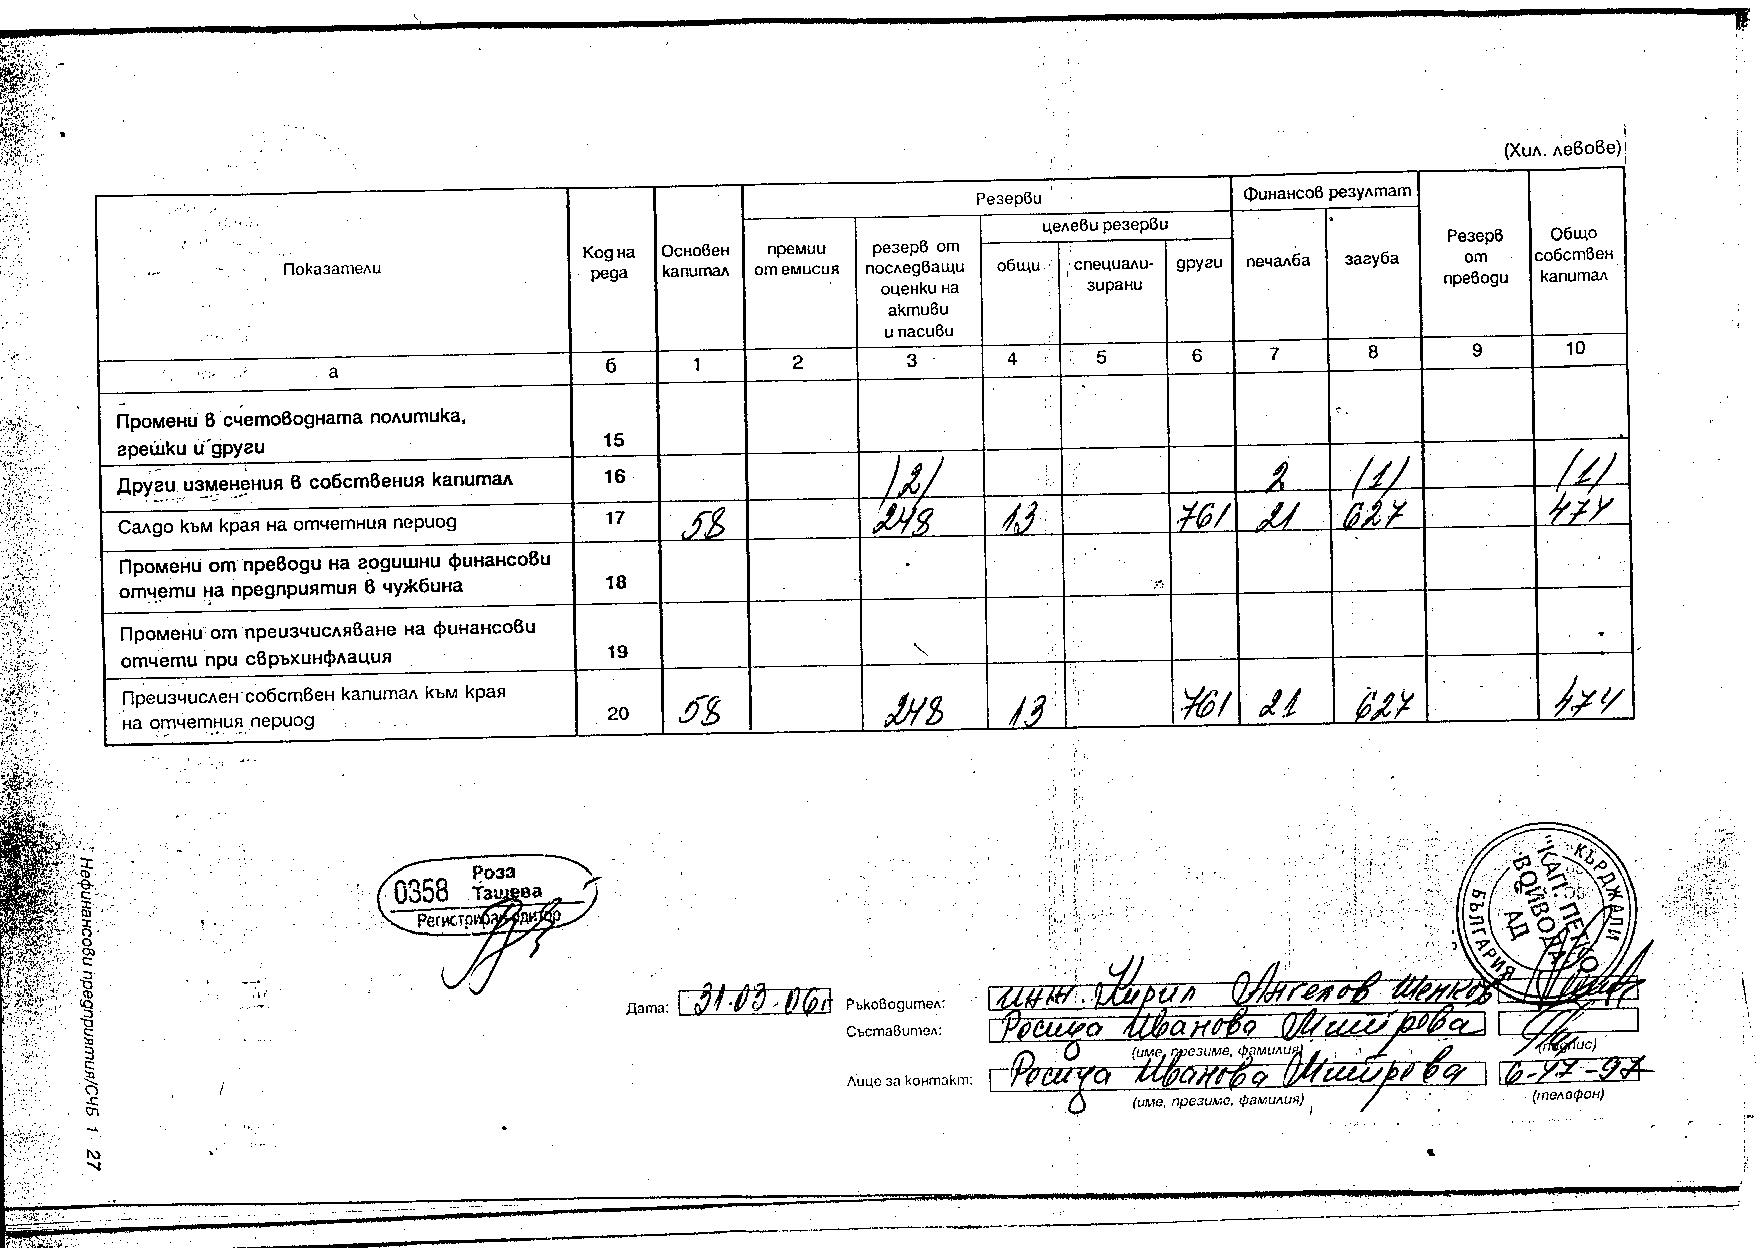 (Хил. левове)
Показатели
Код на
реда
Основен
капитал
Резерви
премии
от емисия
резерв от
последващи
оценки на
активи
и пасиви
целеви резерви
общи
специали-
зирани
други
Финансов резултат
печалба
загуба
Резерв
от
преводи
Общо
собствен
капитал
а б 1 2 3 4 5 6 7 8 9 10
Промени в счетоводната политика,
грешки и други 15
Други изменения в собствения капитал 16 (2) 2 (1) (1)
Салдо към края на отчетния период 17 58 248 13 761 21 627 474
Промени от преводи на годишни финансови
отчети на предприятия в чужбина 18
Промени от преизчисляване на финансови
отчети при свръхинфлация 19
Преизчислен собствен капитал към края
на отчетния период 20 58 248 13 761 21 627 474
Нефинансови предприятия/СЧБ 1 27
0358 Роза
Ташева
Регистриран одитор
КЪРДЖАЛИ
БЪЛГАРИЯ
"КАП. ПЕТКО
ВОЙВОДА"
АД
Дата: 31.03.06г
Ръководител: инж. Кирил Ангелов Шенков
Съставител: Росица Иванова Митрова
(име, презиме, фамилия) (подпис)
Лице за контакт: Росица Иванова Митрова 6-47-97
(име, презиме, фамилия) (телефон)